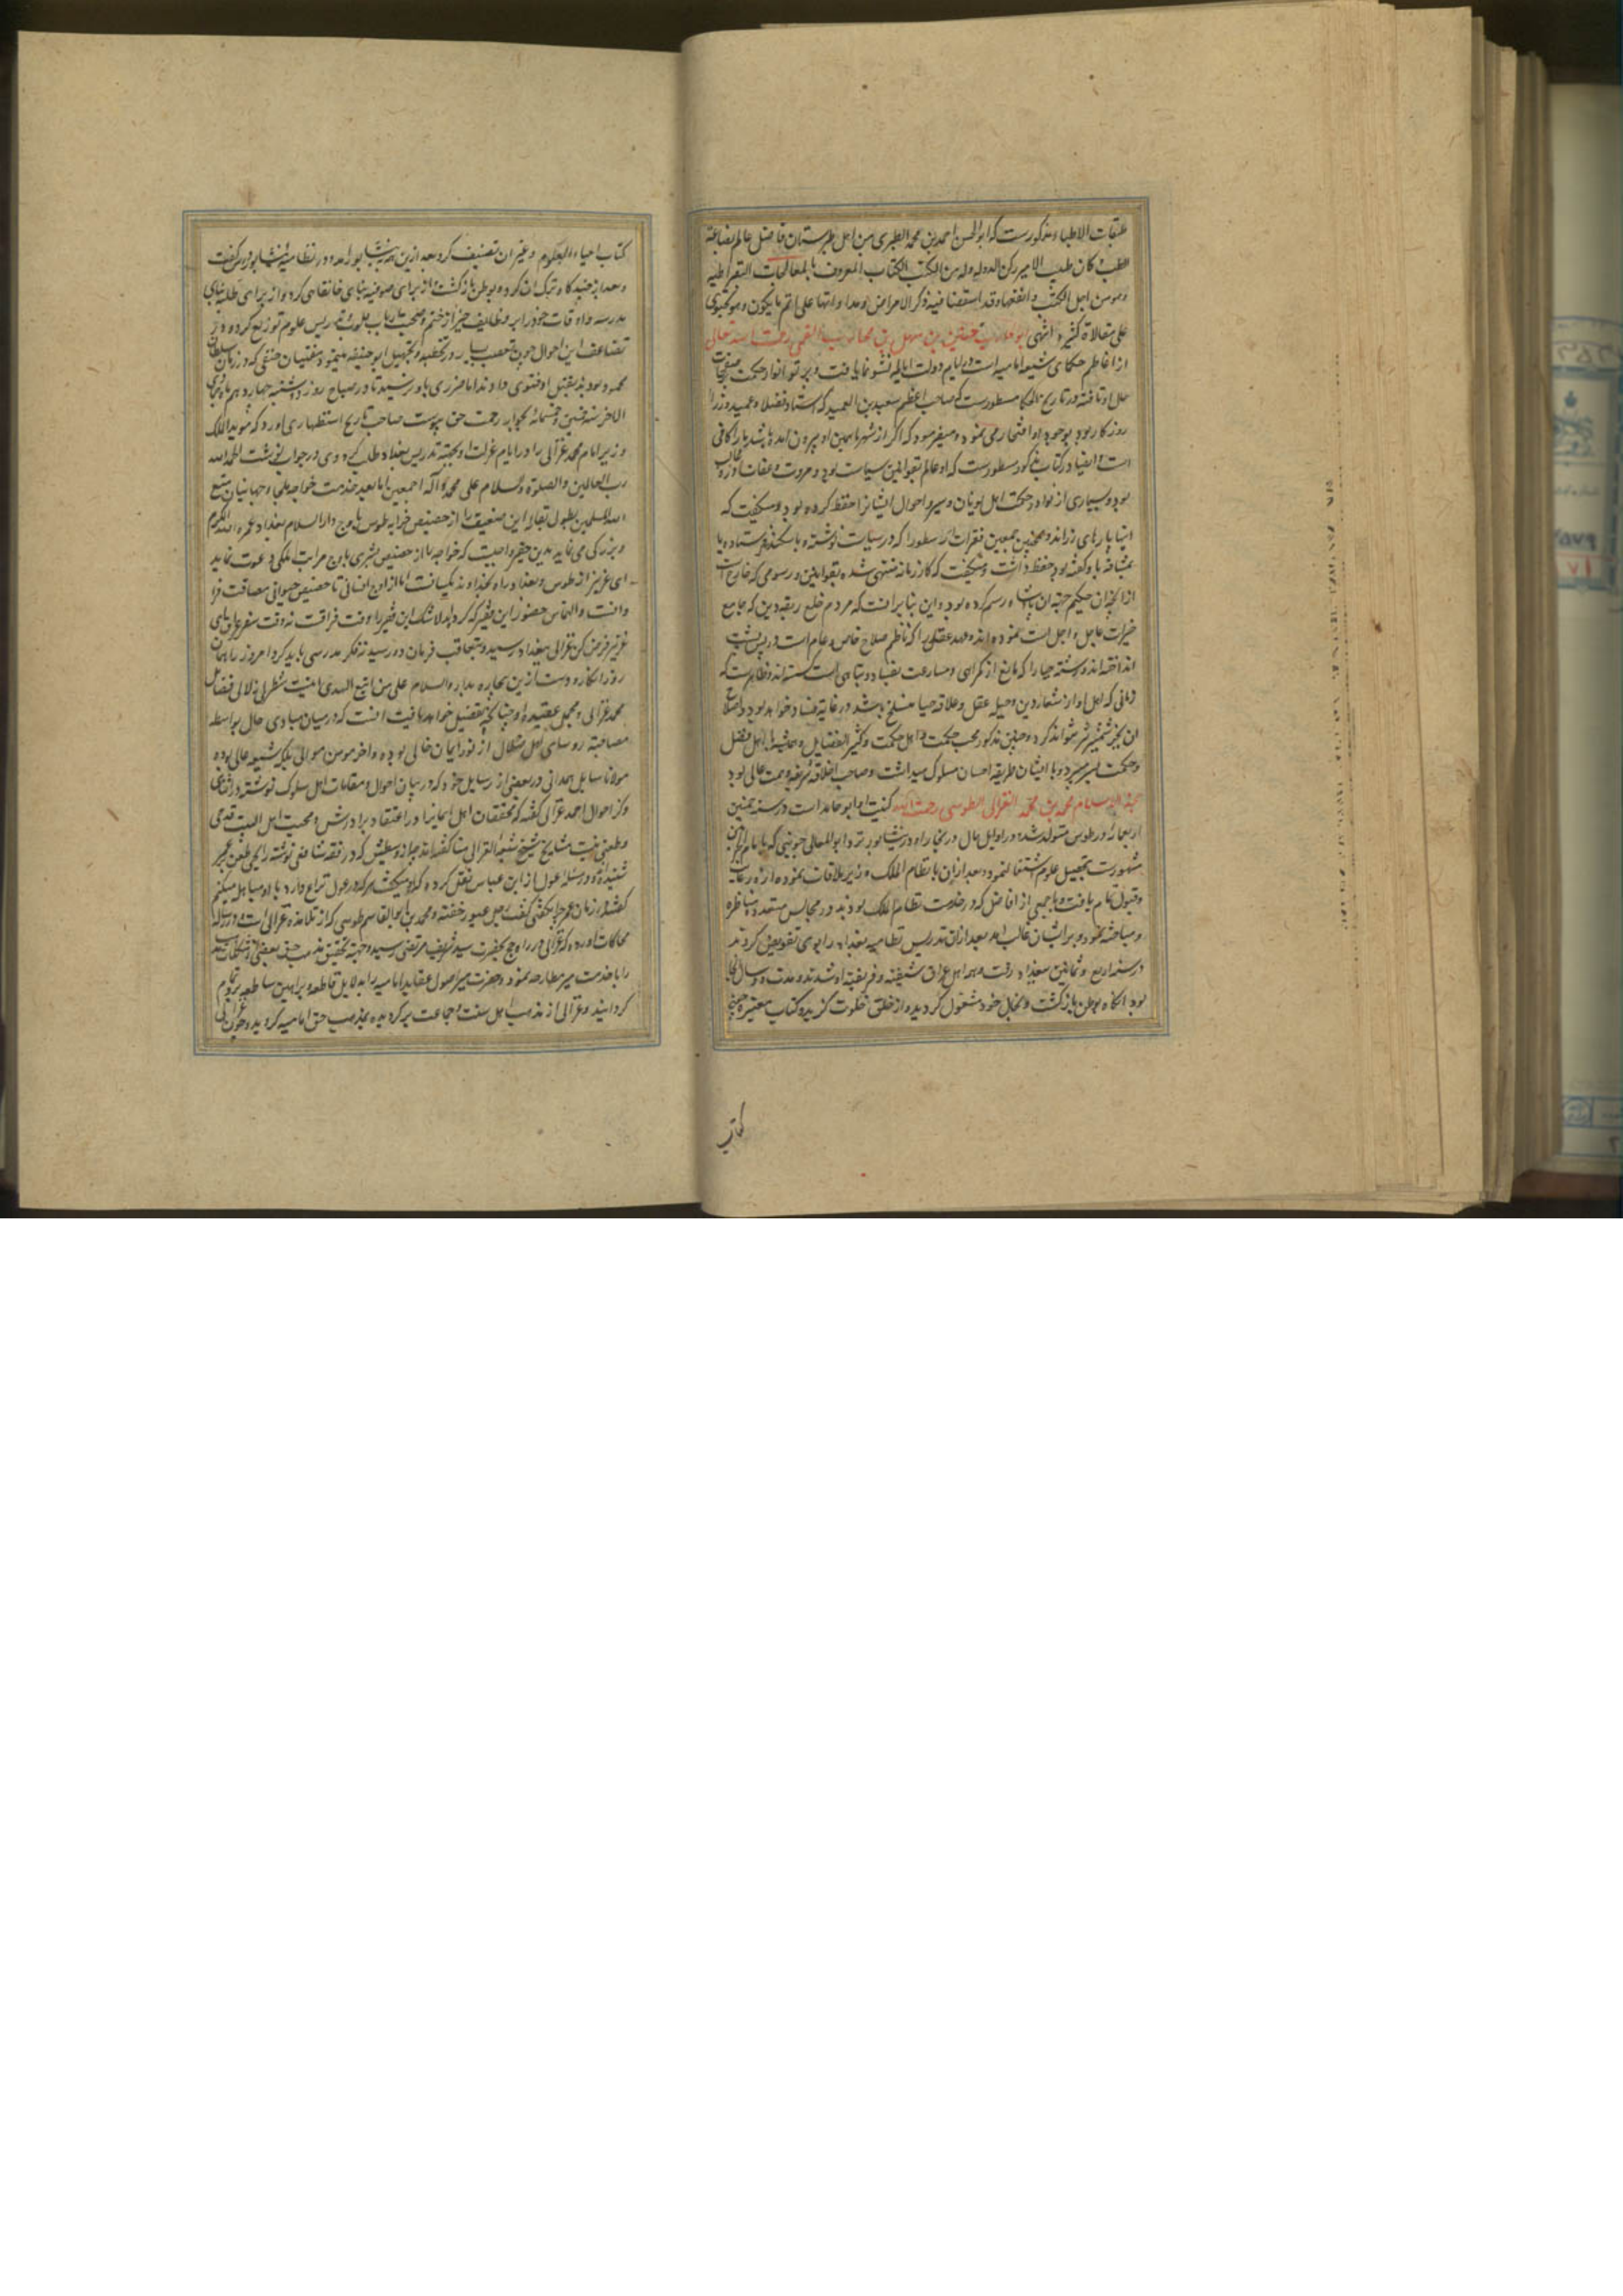 طبقات الاطباء مذکورست که ابو الحسن احمد بن محمد الطبری من اهل طبرستان فاضل عالم بصناعة
الطب کان طبیب الامیر رکن الدوله و له من الکتب الکتاب المعروف بالمعالجات البقراطیه
و هو من اجل الکتب و انفعها و قد استقصا فیه ذکر الامراض و مداواتها علی اتم ما یکون و هو یحتوی
علی مقالاة کثیرة انتهی ابو بن سهل بن القمی رحمت الله تعالی
از اعاظم حکمای شیعه امامیه است در ایام دولت نشو نما یافت و پرتو انوار حکمت
حال او تافته در تاریخ الحکما مسطورست که صاحب اعظم سعید بن العمید که استاد فضلا و عمید وزرا
روزکار بود بوجود او افتخار می نمود و میفرمود که اکر از شهر ما همین او بیرون آمده باشد ما را کافی
است و ایضا در کتاب مذکور مسطورست که او عالم بقوانین سیاست بود و مروت و عفاف
بود و بسیاری از نوادر حکمت اهل یونان و سیر و احوال ایشانرا حفظ کرده بود و میکفت که
فقرات ارسطو را که در سیاست نوشته و با سکندر فرستاده یا
بمشافهه با و کفته بود حفظ داشت و میکفت که کار زمانه منتهی شده بقوانین و رسومی که خارج است
از انچه آن حکیم رسم کرده بود و این بنابر آنست که مردم خلع ربقه دین که جامع
خیرات عاجل و اجل است نموده اند و عقل را که ناظم صلاح خاص و عام است در پس پشت
انداخته اند و رشته حیا را که مانع از کمراهی و مسارعت بفساد و تباهی است کسسته اند و ظاهرست که
زمانی که اهل او از شعار دین و حیله عقل و علاقه حیا منسلخ باشد در غایة فساد خواهد بود و اصلاح
آن بجز شمشیر نتواند کرد و مذکور محب حکمت و اهل حکمت و کثیر الفضایل و همیشه با اهل فضل
و حکمت بسر میبرد و با ایشان طریقه احسان مسلوک میداشت و صاحب اخلاق شریفه و همت عالی بود
حجة الاسلام محمد بن محمد الغزالی الطوسی رحمت الله کنیت او ابو حامد است در سنه خمسین
اربعمائه در طوس متولد شده در اوایل حال در انجا و در نیشابور نزد ابو المعالی جوینی که بامام الحرمین
مشهورست بتحصیل علوم اشتغال نمود و بعد ازان با نظام الملک وزیر ملاقات نموده ازو رعایت
و قبول تمام یافت و با جمعی از افاضل که در خدمت نظام الملک بودند در مجالس متعدده مناظره
و مباحثه نمود و بر ایشان غالب آمد بعد ازان تدریس نظامیه بغداد را بوی تفویض کردند
در سنه اربع و ثمانین ببغداد رفت و همه اهل عراق شیفته و فریفته او شدند و مدت دو سال انجا
بود آنکاه بوطن بازکشت و بحال خود مشغول کردید و از خلق خلوت کزید و کتاب معتبره
کتاب
کتاب احیاء العلوم و غیر آن تصنیف کرد بعد ازین به نیشابور آمد و در نظامیه نیشابور درس کفت
و بعد از چند کاه ترک آن کرده بوطن بازکشت و از برای صوفیه بنای خانقاهی کرد و از برای طلبه بنای
مدرسه و اوقات خود را بر وظایف خیر از ختم و صحبت ارباب قلوب و تدریس علوم توزیع کرده و در
تضاعف این احوال چون تعصب بسیار در تخطیه و تجهیل ابو حنیفه مینمود مفتیان حنفی که در زمان سلطان
محمود بودند بقتل او فتوی دادند اما ضرری باو نرسید تا در صباح روز دوشنبه چهاردهم جمادی
الاخر سنه خمس و خمسمائه بجوار رحمت حق پیوست صاحب تاریخ استظهاری آورده که مؤید الملک
وزیر امام محمد غزالی را در ایام عزلت او بجهة تدریس بغداد طلب کرد وی در جواب نوشت الحمد لله
رب العالمین و الصلوة و السلام علی محمد و آله اجمعین اما بعد خدمت خواجه ملجاء جهانیان متع
الله المسلمین بطول بقائه این ضعیف را از حضیض خرابه طوس باوج دار السلام بغداد عمره الله الکرم
و بزرکی می نماید بدین حقیر واجبست که خواجه را از حضیض بشری باوج مراتب ملکی دعوت نماید
ای عزیز از طوس و بغداد راه بخداوند یکسانست اما از اوج انسانی تا حضیض حیوانی مسافت
و التماس حضور این فقیر که کرده اند لاشک این فقیر را وقت فراقست نه وقت سفر عراق ای
عزیز فرض کن غزالی ببغداد رسید و متعاقب فرمان در رسید نه فکر مدرسی باید کرد امروز را همان
روز انکار و دست ازین بیچاره بدار و السلام علی من اتبع الهدی
محمد غزالی و مجمل عقیده او چنانچه بتفصیل خواهد یافت آنست که در میان مبادی حال بواسطه
مصاحبت روسای اهل ضلال از نور ایمان خالی بوده و آخر مومن موالی بلکه شیعه عالی بوده
مولانا همدانی در بعضی از رسایل خود که در بیان احوال و مقامات اهل سلوک نوشته در اثنای
ذکر احوال احمد غزالی کفته که محققان اهل ایمانرا در اعتقاد برادرش و محبت اهل البیت قدحی
و طعنی نیست مشایخ
شنیده و در مسئله عول از ابن عباس نقل کرده که او میکفت هر که در عول نزاع دارد با او مباهله میکنم
کفتند در زمان عمر چرا نکفتی کفت رجل مهیب خفته و محمد بن ابو القاسم طوسی که از تلامذه غزالی است در رساله
محاکات آورده که غزالی در راه حج بحضرت سید شریف مرتضی رسید و جهة تحقیق مذهب حق بعضی از مشکلات
را با خدمت میر مطارحه نمود و حضرت میر اصول عقاید امامیه را بدلایل قاطعه و براهین ساطعه بر او تمام
کردانید و غزالی از مذهب اهل سنت و جماعت برکردیده بمذهب حق امامیه کروید و چون